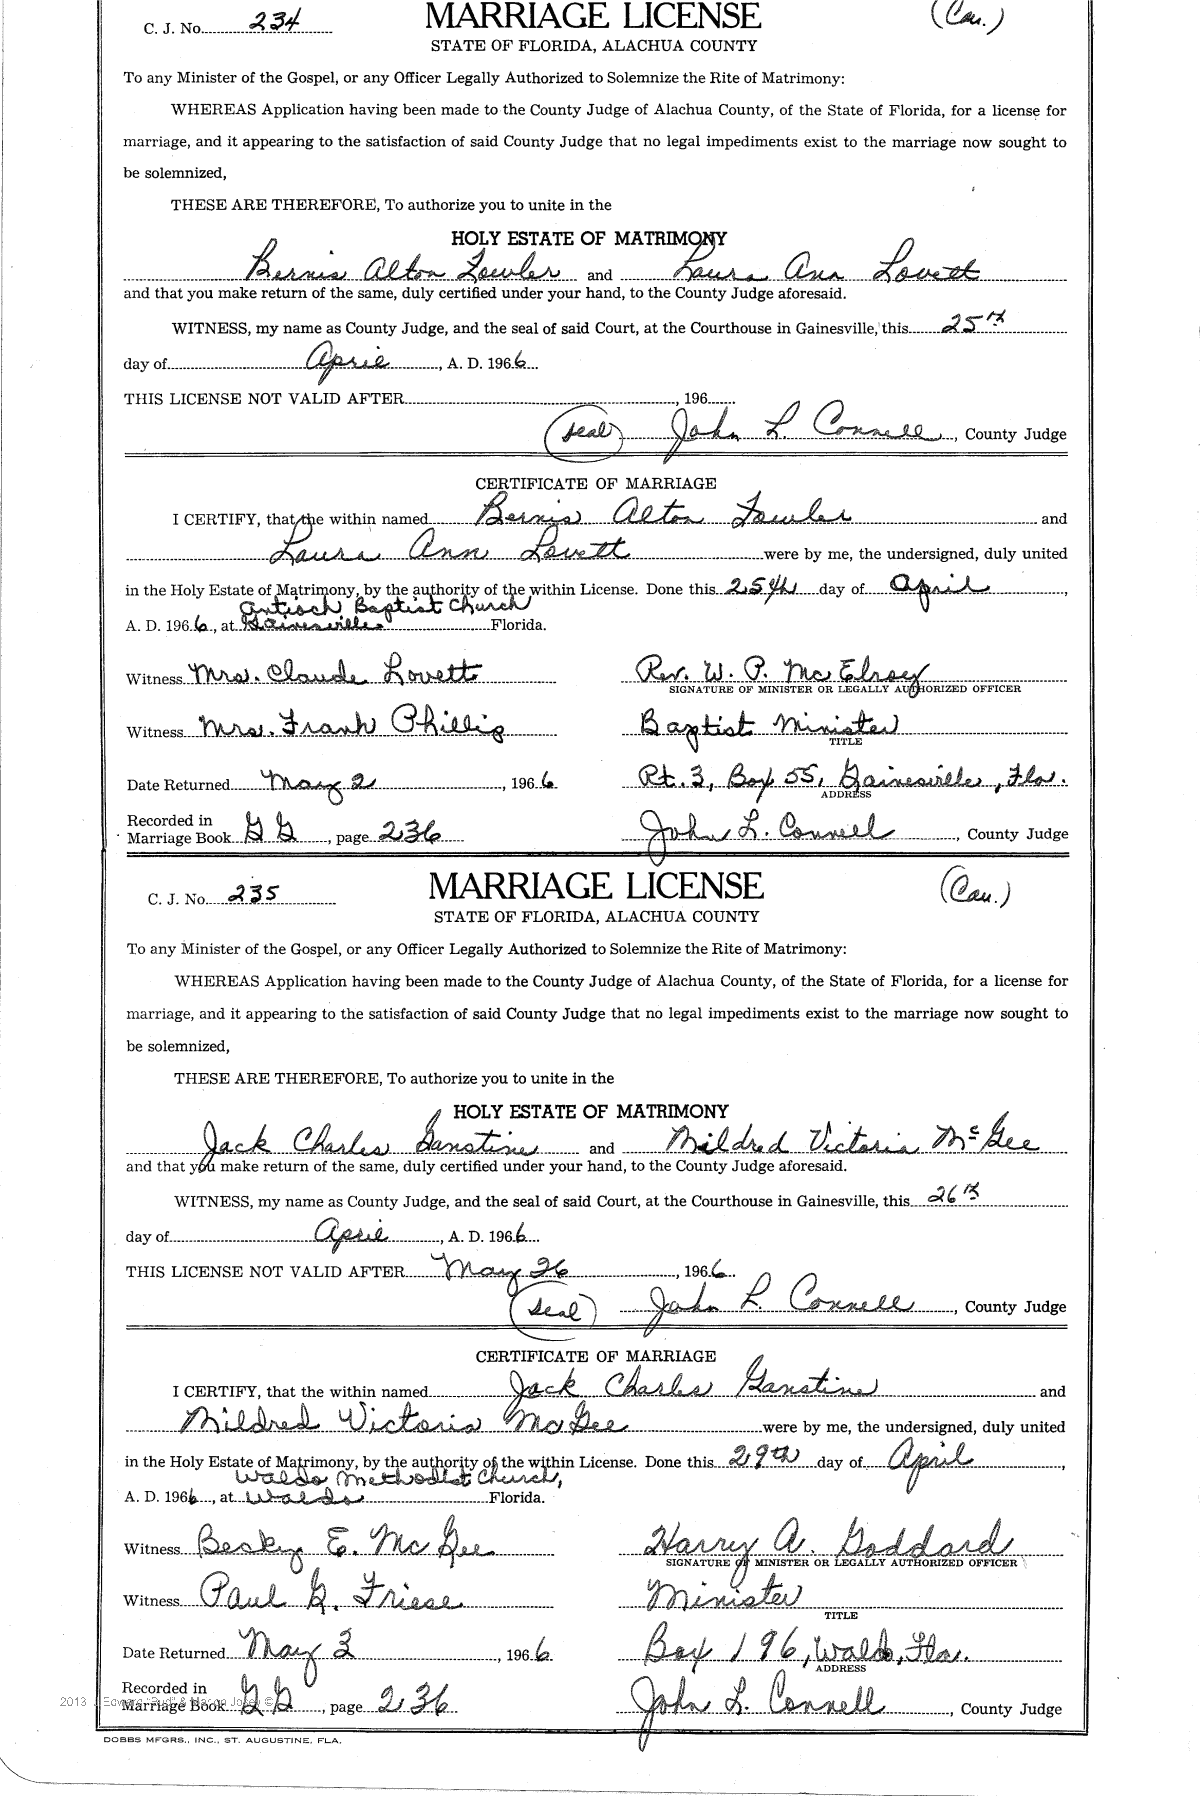 C. J. No. 234 MARRIAGE LICENSE (Cau.)
STATE OF FLORIDA, ALACHUA COUNTY
To any Minister of the Gospel, or any Officer Legally Authorized to Solemnize the Rite of Matrimony:
WHEREAS Application having been made to the County Judge of Alachua County, of the State of Florida, for a license for
marriage, and it appearing to the satisfaction of said County Judge that no legal impediments exist to the marriage now sought to
be solemnized,
THESE ARE THEREFORE, To authorize you to unite in the
HOLY ESTATE OF MATRIMONY
Bernis Alton Fowler and Laura Ann Lovett
and that you make return of the same, duly certified under your hand, to the County Judge aforesaid.
WITNESS, my name as County Judge, and the seal of said Court, at the Courthouse in Gainesville, this 25th
day of April, A. D. 1966
THIS LICENSE NOT VALID AFTER , 196
(seal) John L. Connell, County Judge
CERTIFICATE OF MARRIAGE
I CERTIFY, that the within named Bernis Alton Fowler and
Laura Ann Lovett were by me, the undersigned, duly united
in the Holy Estate of Matrimony, by the authority of the within License. Done this 25th day of April,
Antioch Baptist Church
A. D. 1966, at Gainesville Florida.
Witness Mrs. Claude Lovett Rev. W. P. McElroy
SIGNATURE OF MINISTER OR LEGALLY AUTHORIZED OFFICER
Witness Mrs. Frank Phillip Baptist Minister
TITLE
Date Returned May 2, 1966 Rt. 3, Box 55, Gainesville, Fla.
ADDRESS
Recorded in
Marriage Book GG, page 236 John L. Connell, County Judge
C. J. No. 235 MARRIAGE LICENSE (Cau.)
STATE OF FLORIDA, ALACHUA COUNTY
To any Minister of the Gospel, or any Officer Legally Authorized to Solemnize the Rite of Matrimony:
WHEREAS Application having been made to the County Judge of Alachua County, of the State of Florida, for a license for
marriage, and it appearing to the satisfaction of said County Judge that no legal impediments exist to the marriage now sought to
be solemnized,
THESE ARE THEREFORE, To authorize you to unite in the
HOLY ESTATE OF MATRIMONY
Jack Charles Ganstine and Mildred Victoria McGee
and that you make return of the same, duly certified under your hand, to the County Judge aforesaid.
WITNESS, my name as County Judge, and the seal of said Court, at the Courthouse in Gainesville, this 26th
day of April, A. D. 1966
THIS LICENSE NOT VALID AFTER May 26, 1966
(seal) John L. Connell, County Judge
CERTIFICATE OF MARRIAGE
I CERTIFY, that the within named Jack Charles Ganstine and
Mildred Victoria McGee were by me, the undersigned, duly united
in the Holy Estate of Matrimony, by the authority of the within License. Done this 29th day of April,
Waldo Methodist Church,
A. D. 1966, at Waldo Florida.
Witness Becky E. McGee Harry A. Goddard
SIGNATURE OF MINISTER OR LEGALLY AUTHORIZED OFFICER
Witness Paul G. Friese Minister
TITLE
Date Returned May 3, 1966 Box 196, Waldo, Fla.
ADDRESS
Recorded in
Marriage Book GG, page 236 John L. Connell, County Judge
2013
DOBBS MFGRS., INC., ST. AUGUSTINE, FLA.